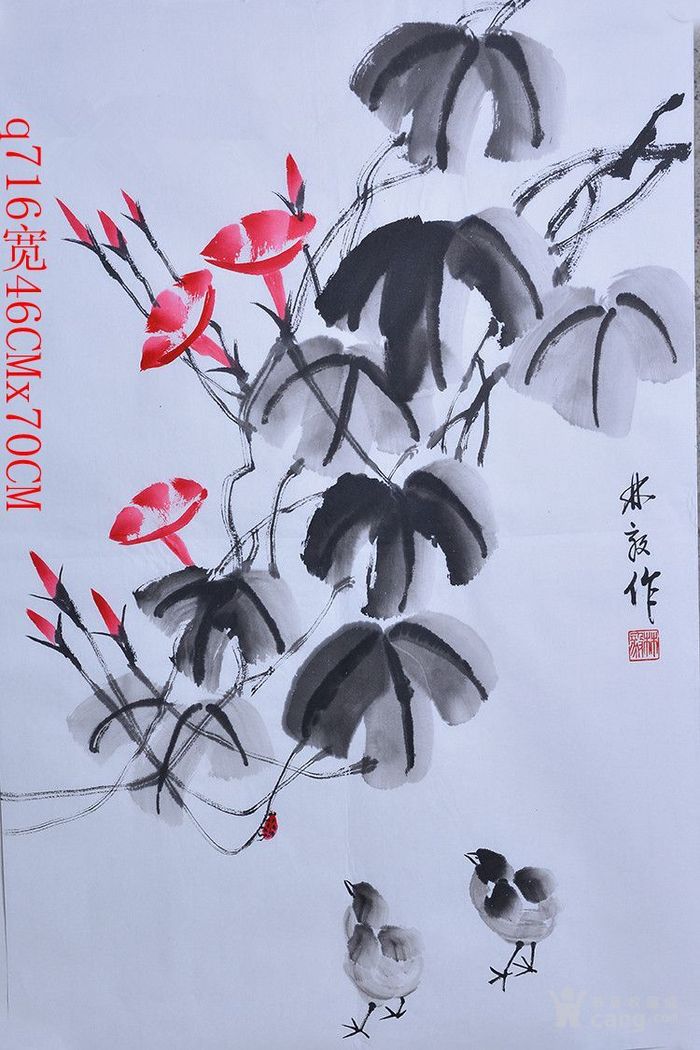 q716宽46CMx70CM
林毅作
林毅
cang.com